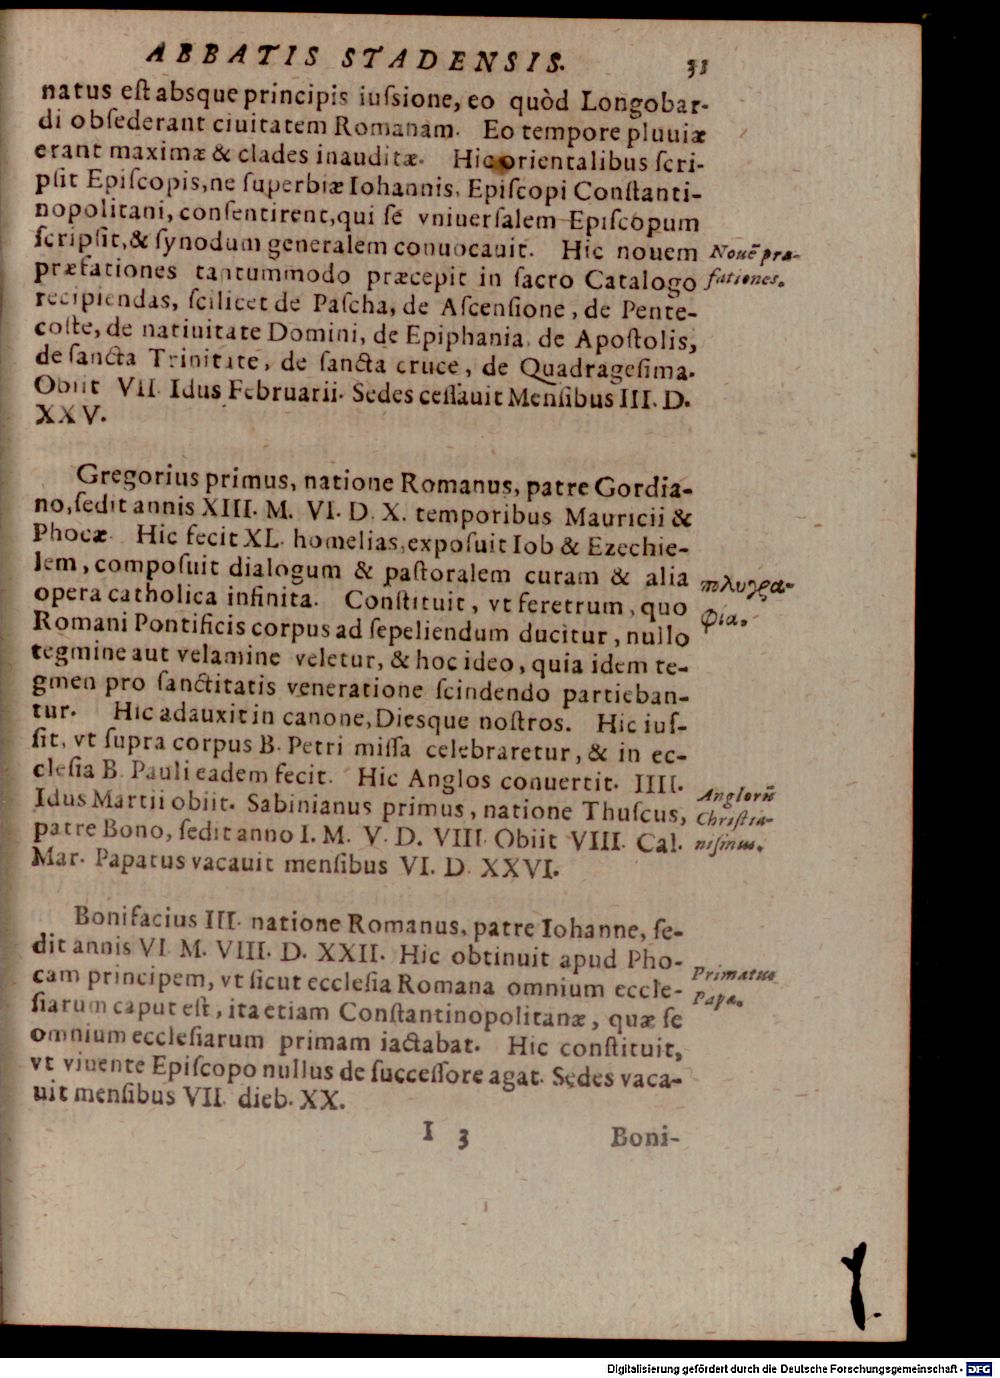 ABBATIS STADENSIS.
natus eſt absque principis iuſsione, eo quòd Longobar-
di obſederant ciuitatem Romanam. Eo tempore pluuiæ
erant maximæ & clades inauditæ. Hic orientalibus ſcri-
pſit Epiſcopis, ne ſuperbiæ Iohannis, Epiſcopi Conſtanti-
nopolitani, conſentirent, qui ſe vniuerſalem Epiſcopum
ſcripſit, & ſynodum generalem conuocauit. Hic nouem
Nouẽ præ-
præfationes tantummodo præcepit in ſacro Catalogo
fationes.
recipiendas, ſcilicet de Paſcha, de Aſcenſione, de Pente-
coſte, de natiuitate Domini, de Epiphania, de Apoſtolis,
de ſancta Trinitate, de ſancta cruce, de Quadrageſima.
Obiit VII. Idus Februarii. Sedes ceſſauit Menſibus III. D.
XXV.
Gregorius primus, natione Romanus, patre Gordia-
no, ſedit annis XIII. M. VI. D. X. temporibus Mauricii &
Phocæ. Hic fecit XL. homelias, expoſuit Iob & Ezechie-
lem, compoſuit dialogum & paſtoralem curam & alia
πολυγρα-
opera catholica infinita. Conſtituit, vt feretrum, quo
φία.
Romani Pontificis corpus ad ſepeliendum ducitur, nullo
tegmine aut velamine veletur, & hoc ideo, quia idem te-
gmen pro ſanctitatis veneratione ſcindendo partieban-
tur. Hic adauxit in canone, Diesque noſtros. Hic iuſ-
ſit, vt ſupra corpus B. Petri miſſa celebraretur, & in ec-
cleſia B. Pauli eadem fecit. Hic Anglos conuertit. IIII.
Anglorũ
Idus Martii obiit. Sabinianus primus, natione Thuſcus,
Chriſtia-
patre Bono, ſedit anno I. M. V. D. VIII. Obiit VIII. Cal.
niſmus.
Mar. Papatus vacauit menſibus VI. D. XXVI.
Bonifacius III. natione Romanus, patre Iohanne, ſe-
dit annis VI. M. VIII. D. XXII. Hic obtinuit apud Pho-
Primatus
cam principem, vt ſicut eccleſia Romana omnium eccle-
Papæ.
ſiarum caput eſt, ita etiam Conſtantinopolitanæ, quæ ſe
omnium eccleſiarum primam iactabat. Hic conſtituit,
vt viuente Epiſcopo nullus de ſucceſſore agat. Sedes vaca-
uit menſibus VII. dieb. XX.
I 3 Boni-
Digitalisierung gefördert durch die Deutsche Forschungsgemeinschaft - DFG